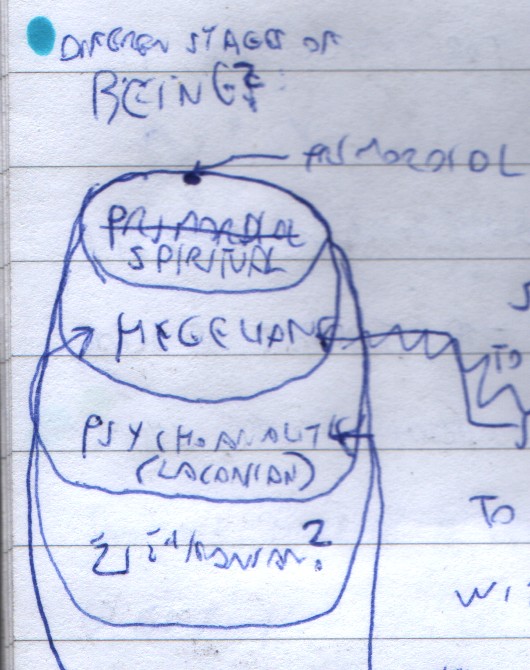 DIFFEREN STAGES OF
BEING?
PRIMORDIAL
PRIMORDIAL
SPIRITUAL
HEGELIAN
TO
PSYCHOANALITIC
(LACANIAN)
TO
?
WI